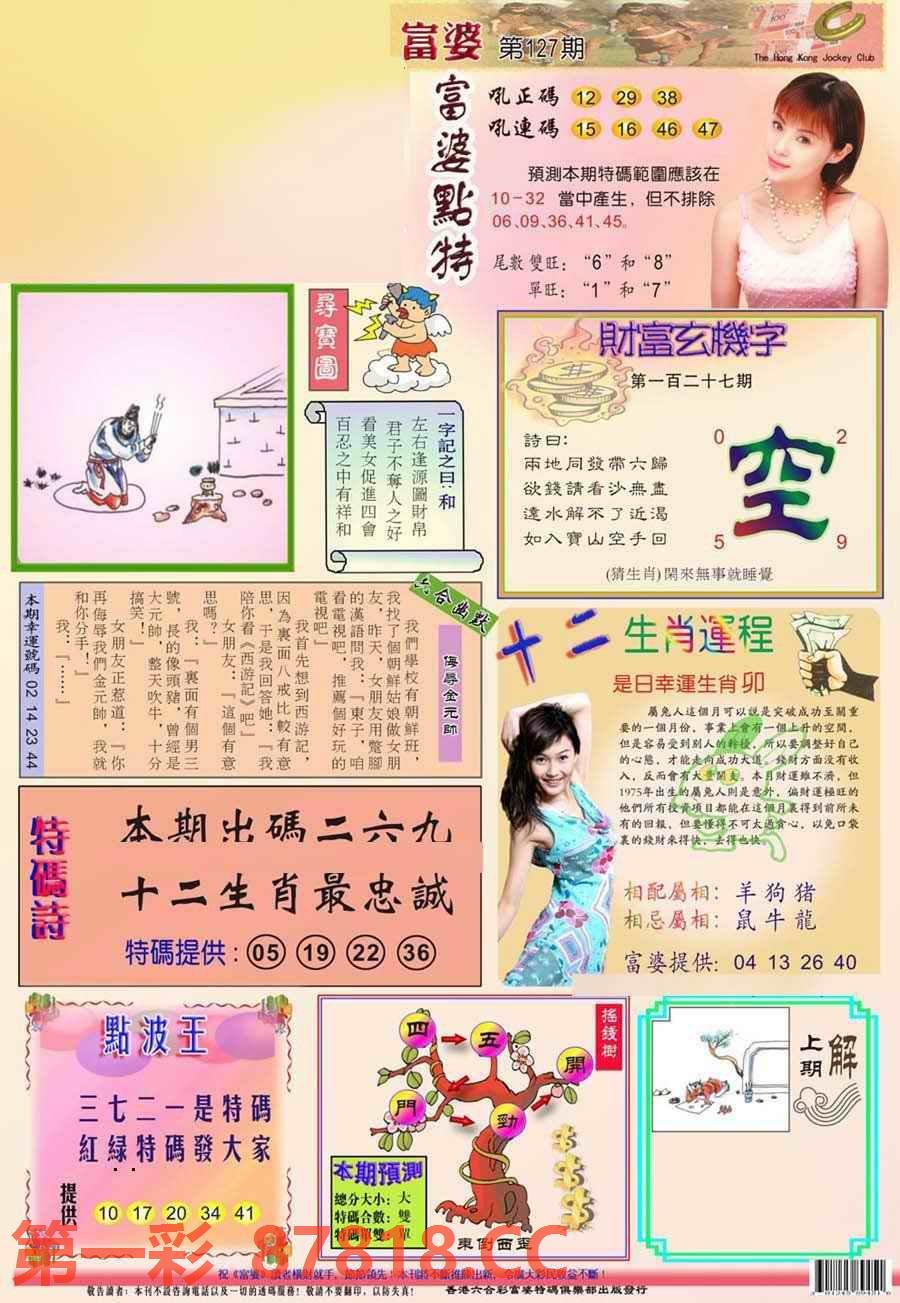 富婆 第127期
The Hong Kong Jockey Club
富婆點特
吼正碼 12 29 38
吼連碼 15 16 46 47
預測本期特碼範圍應該在
10-32 當中產生，但不排除
06、09、36、41、45。
尾數雙旺：“6”和“8”
單旺：“1”和“7”
尋寶圖
一字記之曰：和
左右逢源圖財帛
君子不奪人之好
看美女促進四會
百忍之中有祥和
財富玄機字
第一百二十七期
詩曰：
兩地同發帶六歸
欲錢請看沙無盡
遠水解不了近渴
如入寶山空手回
0 2
空
5 9
(猜生肖)閑來無事就睡覺
六合幽默
侮辱金元帥
我們學校有朝鮮班，
我找了個朝鮮姑娘做女朋
友，昨天，女朋友用蹩腳
的漢語問我：『東子，咱
看電視吧，推薦個好玩的
電視吧』
我首先想到西游記，
因為裏面八戒比較有意
思，于是我回答她：『我
陪你看《西游記》吧』
女朋友：『這個有意
思嗎？』
我：『裏面有個男三
號，長的像頭豬，曾經是
大元帥，整天吹牛，十分
搞笑！』
女朋友正惹道：『你
再侮辱我們金元帥，我就
和你分手！』
我：『……』
本期幸運號碼 02 14 23 44
十二生肖運程
是日幸運生肖 卯
屬兔人這個月可以說是突破成功至關重
要的一個月份，事業上會有一個上升的空間，
但是容易受到別人的幹擾，所以要調整好自己
的心態，才能走向成功大道。錢財方面沒有收
入，反而會有大量開支。本月財運雖不濟，但
1975年出生的屬兔人則是意外，偏財運極旺的
他們所有投資項目都能在這個月裏得到前所未
有的回報，但要懂得不可太過貪心，以免口袋
裏的錢財來得快，去得也快。
相配屬相：羊狗豬
相忌屬相：鼠牛龍
富婆提供：04 13 26 40
特碼詩
本期出碼二六九
十二生肖最忠誠
特碼提供：05 19 22 36
點波王
三七二一是特碼
紅綠特碼發大家
提供 10 17 20 34 41
搖錢樹
四 五
開
門
勁
本期預測
總分大小：大
特碼合數：雙
特碼單雙：單
東倒西歪
上期解
第一彩 87818.CC
祝《富婆》讀者橫財就手，節節領先！本刊將不斷推陳出新，令廣大彩民收益不斷！
敬告讀者：本刊不設咨詢電話以及一切的透碼服務！敬請不要翻印，以防失真！
香港六合彩富婆特碼俱樂部出版發行